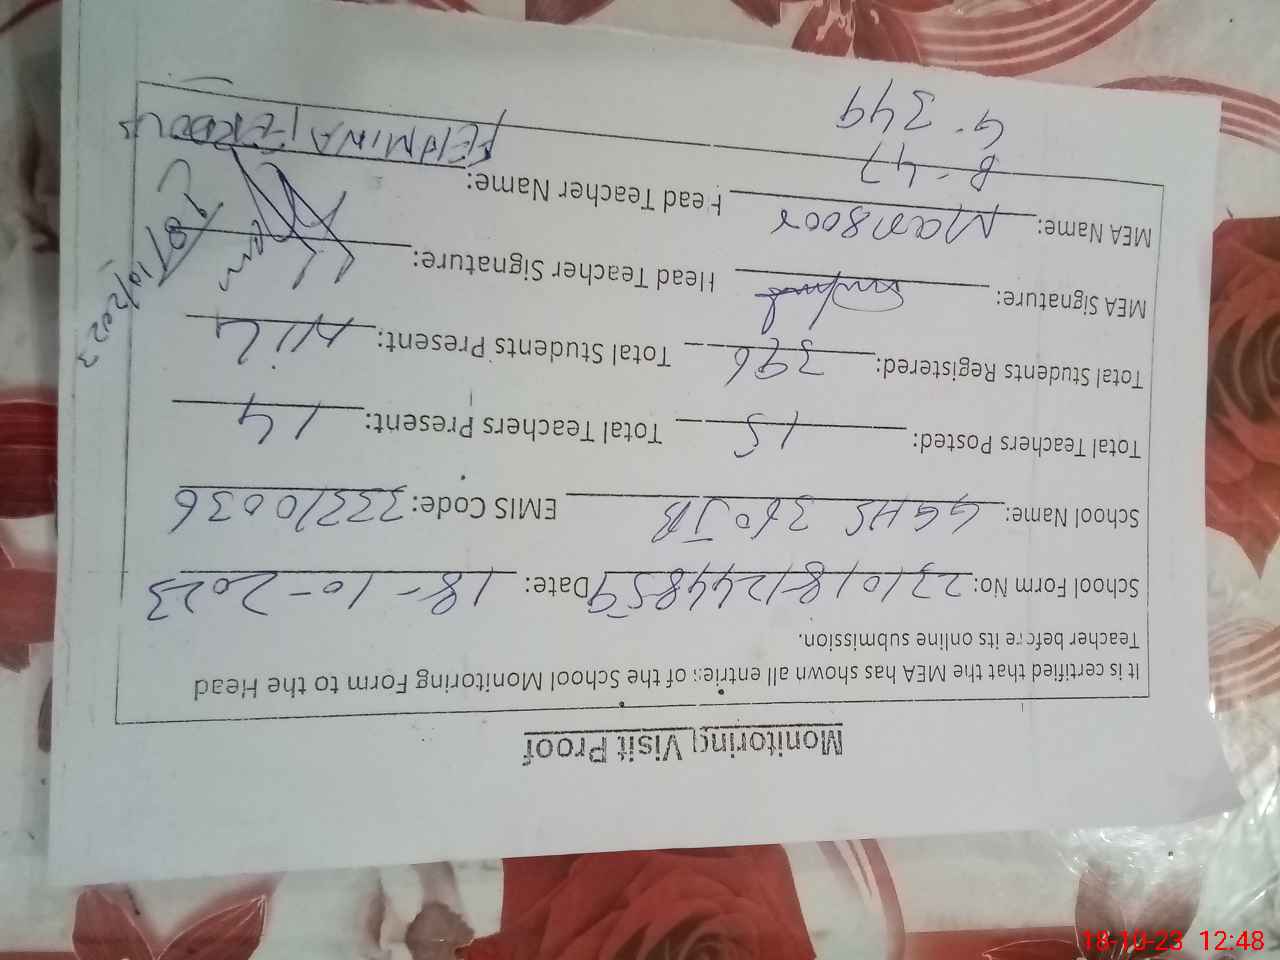 Monitoring Visit Proof
It is certified that the MEA has shown all entries of the School Monitoring Form to the Head
Teacher before its online submission.
School Form No: 231018-1244859 Date: 18-10-2023
School Name: GGHS 360 JB EMIS Code: 33310036
Total Teachers Posted: 15 Total Teachers Present: 14
Total Students Registered: 396 Total Students Present: NIL
MEA Signature: Head Teacher Signature:
18/10/2023
MEA Name: Mansoor Head Teacher Name: FEHMINA FERDOUS
B-47
G-349
18-10-23 12:48